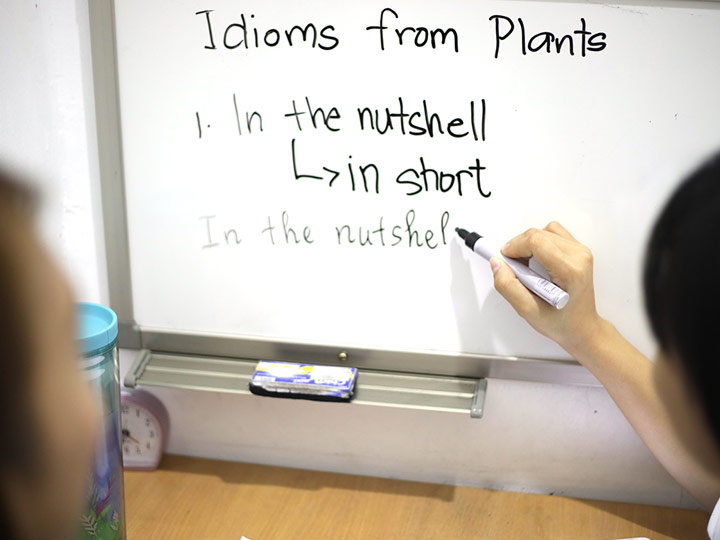 Idioms from Plants
1. In the nutshell
↳ in short
In the nutshel